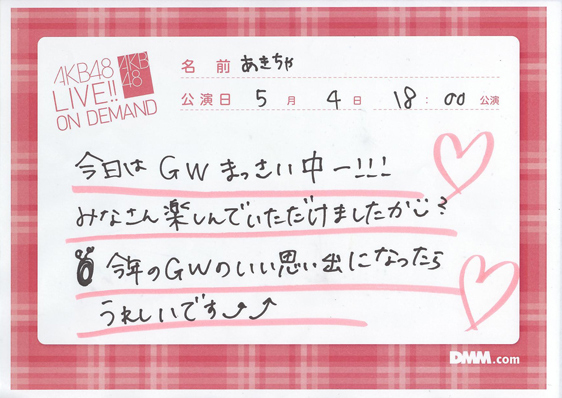 AKB48
LIVE!!
ON DEMAND
AKB
48
名前 あきちゃ
公演日 5月 4日 18:00 公演
今日は GW まっさい中ー!!!
みなさん楽しんでいただけましたか?
今年のGWのいい思い出になったら
うれしいです
DMM.com